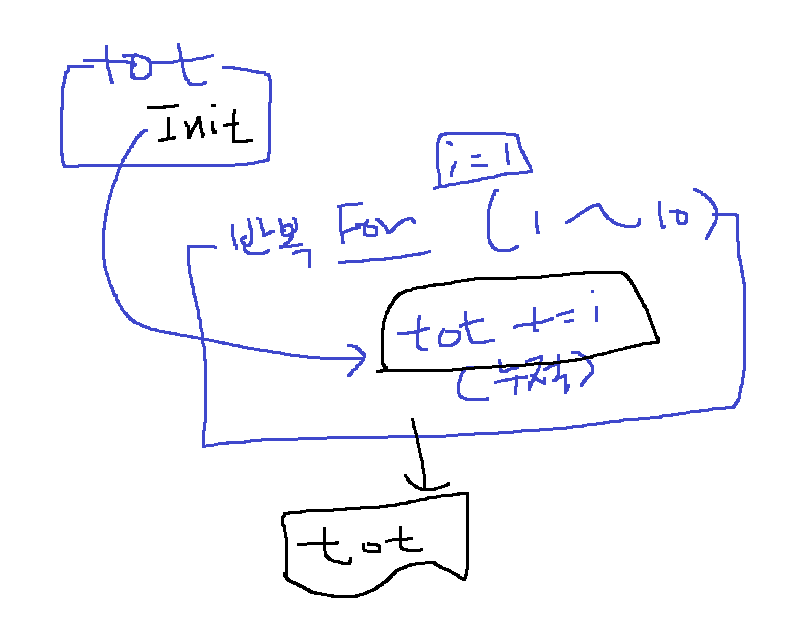 tot
Init
i = 1
반복 For (1 ~ 10)
tot += i
(누적)
tot